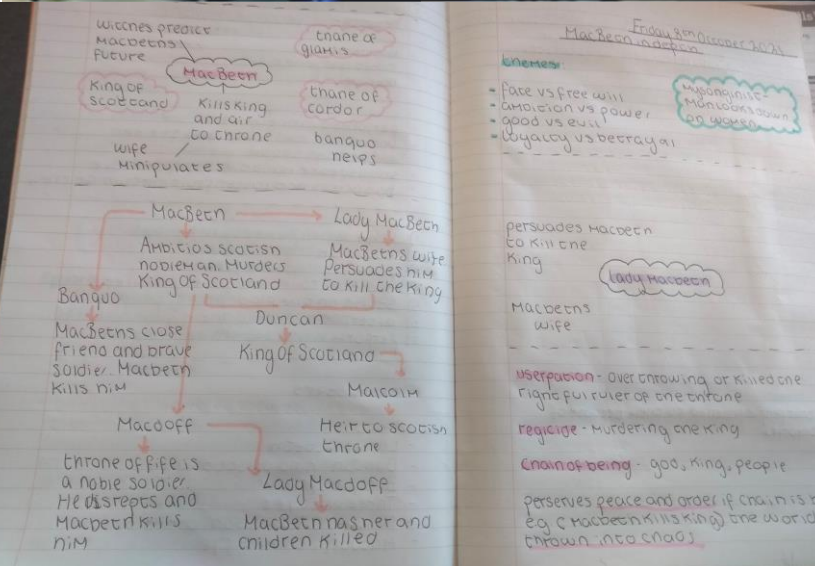 witcnes predict
Macbetns
future
thane of
glamis
MacBetn
King of
scotcand
Kills king
and air
to throne
thane of
cordor
wife
Minipulates
banquo
neips
MacBetn
Lady MacBetn
Ambitios scotisn
nobleman. Murders
King of Scotland
MacBetns wife.
Persuades him
to kill the King
Banquo
MacBetns close
friend and brave
soldier. Macbetn
kills him
Duncan
King of Scotland
Malcolm
Heir to scotisn
throne
Macdoff
throne of fife is
a noble soldier.
He disrepts and
Macbetn kills
him
Lady Macdoff
MacBetn has her and
children killed
Friday 8th October 2021
MacBetn indepth
themes
- fate vs free will
- ambition vs power
- good vs evil
- loyalty vs betrayal
Mysonginist-
Man looks down
on women
persuades Macbetn
to kill the
King
Lady Macbetn
Macbetns
wife
userpation - over throwing or killed the
rightful ruler of the throne
regicide - Murdering the King
chain of being - god, king, people
perserves peace and order if chain is
eg (Macbetn kills king) the world
thrown into chaos